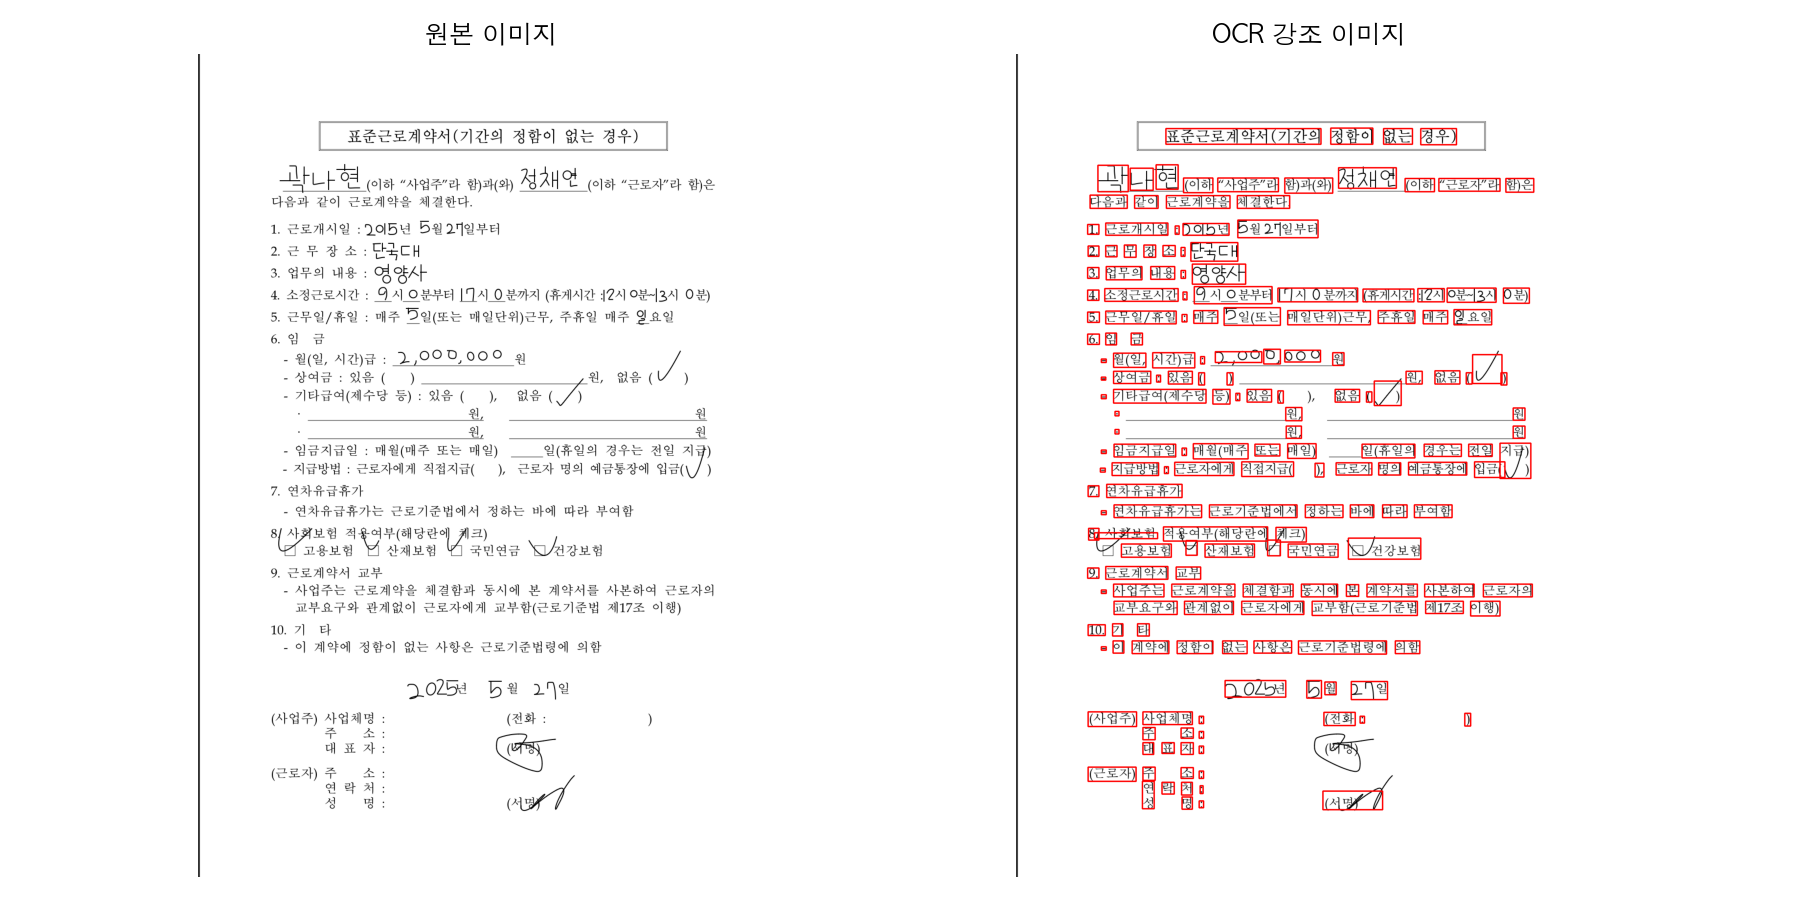 원본 이미지
표준근로계약서(기간의 정함이 없는 경우)
곽나현 (이하 “사업주”라 함)과(와) 정채연 (이하 “근로자”라 함)은
다음과 같이 근로계약을 체결한다.
1. 근로개시일 : 2015년 5월 27일부터
2. 근 무 장 소 : 단국대
3. 업무의 내용 : 영양사
4. 소정근로시간 : 9시 0분부터 17시 0분까지 (휴게시간 :12시 0분~13시 0분)
5. 근무일/휴일 : 매주 5일(또는 매일단위)근무, 주휴일 매주 일요일
6. 임 금
- 월(일, 시간)급 : 2,000,000 원
- 상여금 : 있음 ( ) 원, 없음 ( ✓ )
- 기타급여(제수당 등) : 있음 ( ), 없음 ( ✓ )
· 원, 원
· 원, 원
- 임금지급일 : 매월(매주 또는 매일) 일(휴일의 경우는 전일 지급)
- 지급방법 : 근로자에게 직접지급( ), 근로자 명의 예금통장에 입금( ✓ )
7. 연차유급휴가
- 연차유급휴가는 근로기준법에서 정하는 바에 따라 부여함
8. 사회보험 적용여부(해당란에 체크)
☑ 고용보험 ☑ 산재보험 ☑ 국민연금 ☑ 건강보험
9. 근로계약서 교부
- 사업주는 근로계약을 체결함과 동시에 본 계약서를 사본하여 근로자의
교부요구와 관계없이 근로자에게 교부함(근로기준법 제17조 이행)
10. 기 타
- 이 계약에 정함이 없는 사항은 근로기준법령에 의함
2025년 5월 27일
(사업주) 사업체명 : (전화 : )
주 소 :
대 표 자 : (서명)
(근로자) 주 소 :
연 락 처 :
성 명 : (서명)
OCR 강조 이미지
표준근로계약서(기간의 정함이 없는 경우)
곽나현 (이하 “사업주”라 함)과(와) 정채연 (이하 “근로자”라 함)은
다음과 같이 근로계약을 체결한다.
1. 근로개시일 : 2015년 5월 27일부터
2. 근 무 장 소 : 단국대
3. 업무의 내용 : 영양사
4. 소정근로시간 : 9시 0분부터 17시 0분까지 (휴게시간 :12시 0분~13시 0분)
5. 근무일/휴일 : 매주 5일(또는 매일단위)근무, 주휴일 매주 일요일
6. 임 금
- 월(일, 시간)급 : 2,000,000 원
- 상여금 : 있음 ( ) 원, 없음 ( ✓ )
- 기타급여(제수당 등) : 있음 ( ), 없음 ( ✓ )
· 원, 원
· 원, 원
- 임금지급일 : 매월(매주 또는 매일) 일(휴일의 경우는 전일 지급)
- 지급방법 : 근로자에게 직접지급( ), 근로자 명의 예금통장에 입금( ✓ )
7. 연차유급휴가
- 연차유급휴가는 근로기준법에서 정하는 바에 따라 부여함
8. 사회보험 적용여부(해당란에 체크)
☑ 고용보험 ☑ 산재보험 ☑ 국민연금 ☑ 건강보험
9. 근로계약서 교부
- 사업주는 근로계약을 체결함과 동시에 본 계약서를 사본하여 근로자의
교부요구와 관계없이 근로자에게 교부함(근로기준법 제17조 이행)
10. 기 타
- 이 계약에 정함이 없는 사항은 근로기준법령에 의함
2025년 5월 27일
(사업주) 사업체명 : (전화 : )
주 소 :
대 표 자 : (서명)
(근로자) 주 소 :
연 락 처 :
성 명 : (서명)